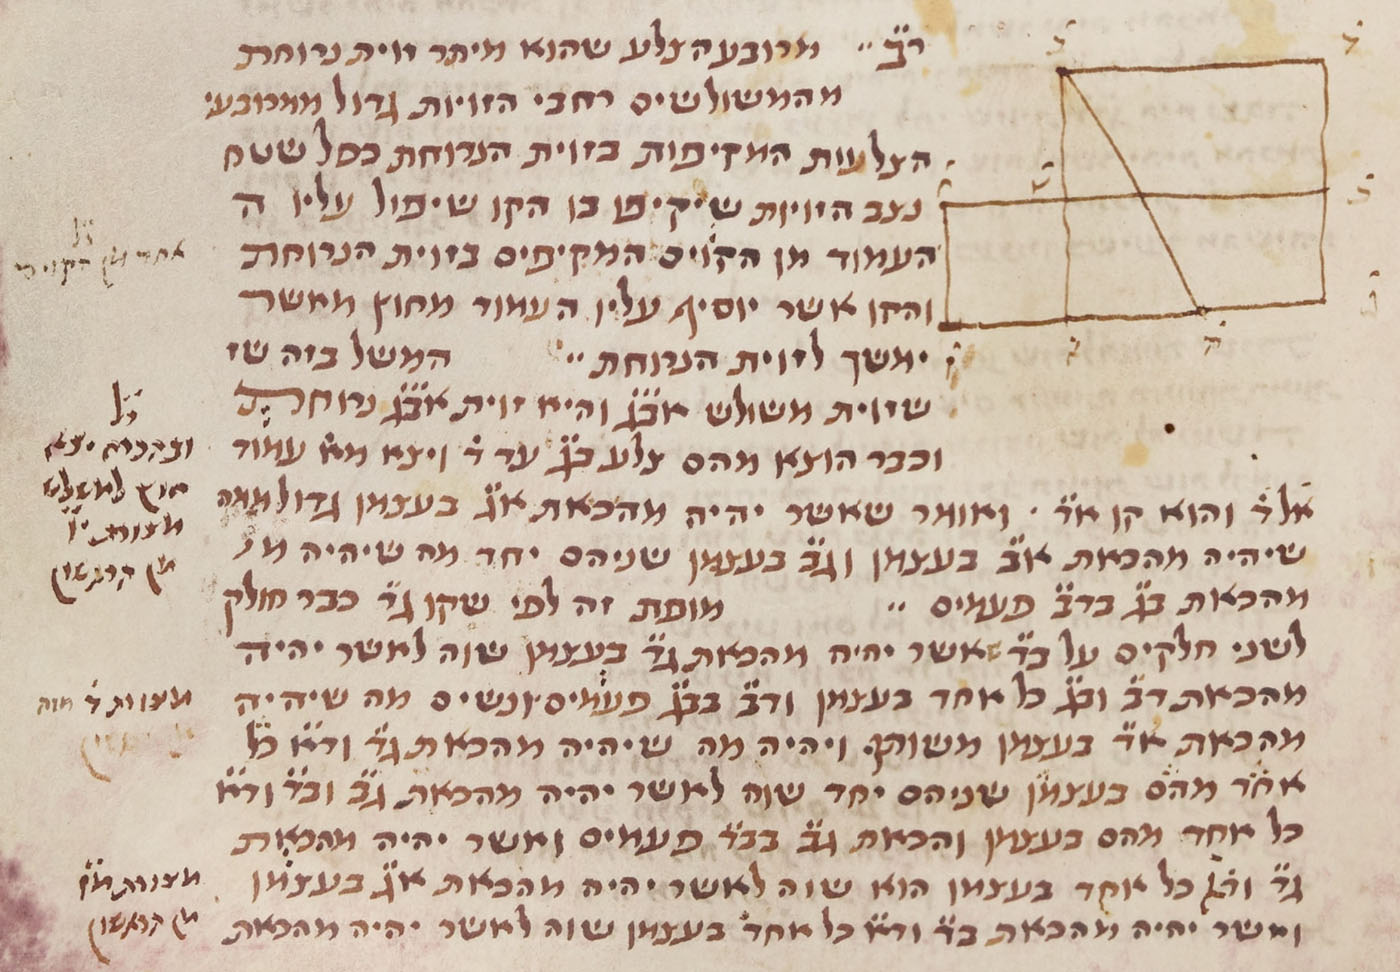 מרובע הצלע שהוא מיתר זוית נרוחת
מהמשולשים רחבי הזויות גדול ממרובעי
הצלעות המקיפות בזוית הנרוחת כפל שטח
נצב הזויות שיקיפו בו הקו שיפול עליו ה
העמוד מן הקוים המקיפים בזוית הנרוחת
והקו אשר יוסיף עליו העמוד מחוץ מאשר
ימשך לזוית הנרוחת המשל בזה שז
שזוית משולש אבג והיא זוית אבג נרוחת
וכבר הוצא מהם צלע בג עד ד ויצא מא עמוד
אל ד והוא קו אד ואומר שאשר יהיה מהכאת אג בעצמן גדול ממה
שיהיה מהכאת אב בעצמן וגב בעצמן שניהם יחד מה שיהיה מ
מהכאת בג ברב פעמים מופת זה לפי שקו גד כבר חולק
לשני חלקים על בד אשר יהיה מהכאת גד בעצמן שוה לאשר יהיה
מהכאת דב ובג כל אחד בעצמן ודב בבג פעמים ונשים מה שיהיה
מהכאת אד בעצמן משותף ויהיה מה שיהיה מהכאת גד ודא כל
אחד מהם בעצמן שניהם יחד שוה לאשר יהיה מהכאת גב ובד ודא
כל אחד מהם בעצמן והכאת גב בבד פעמים ואשר יהיה מהכאת
גד ודא כל אחד בעצמן הוא שוה לאשר יהיה מהכאת אג בעצמן
ואשר יהיה מהכאת בד ודא כל אחד בעצמן שוה לאשר יהיה מהכאת
אחד מן הקוים
ובהכרח יצא
חוץ למשולש
מצורת יו
מן הראשון
מצורת ד מזה
מצורת מו
מן הראשון